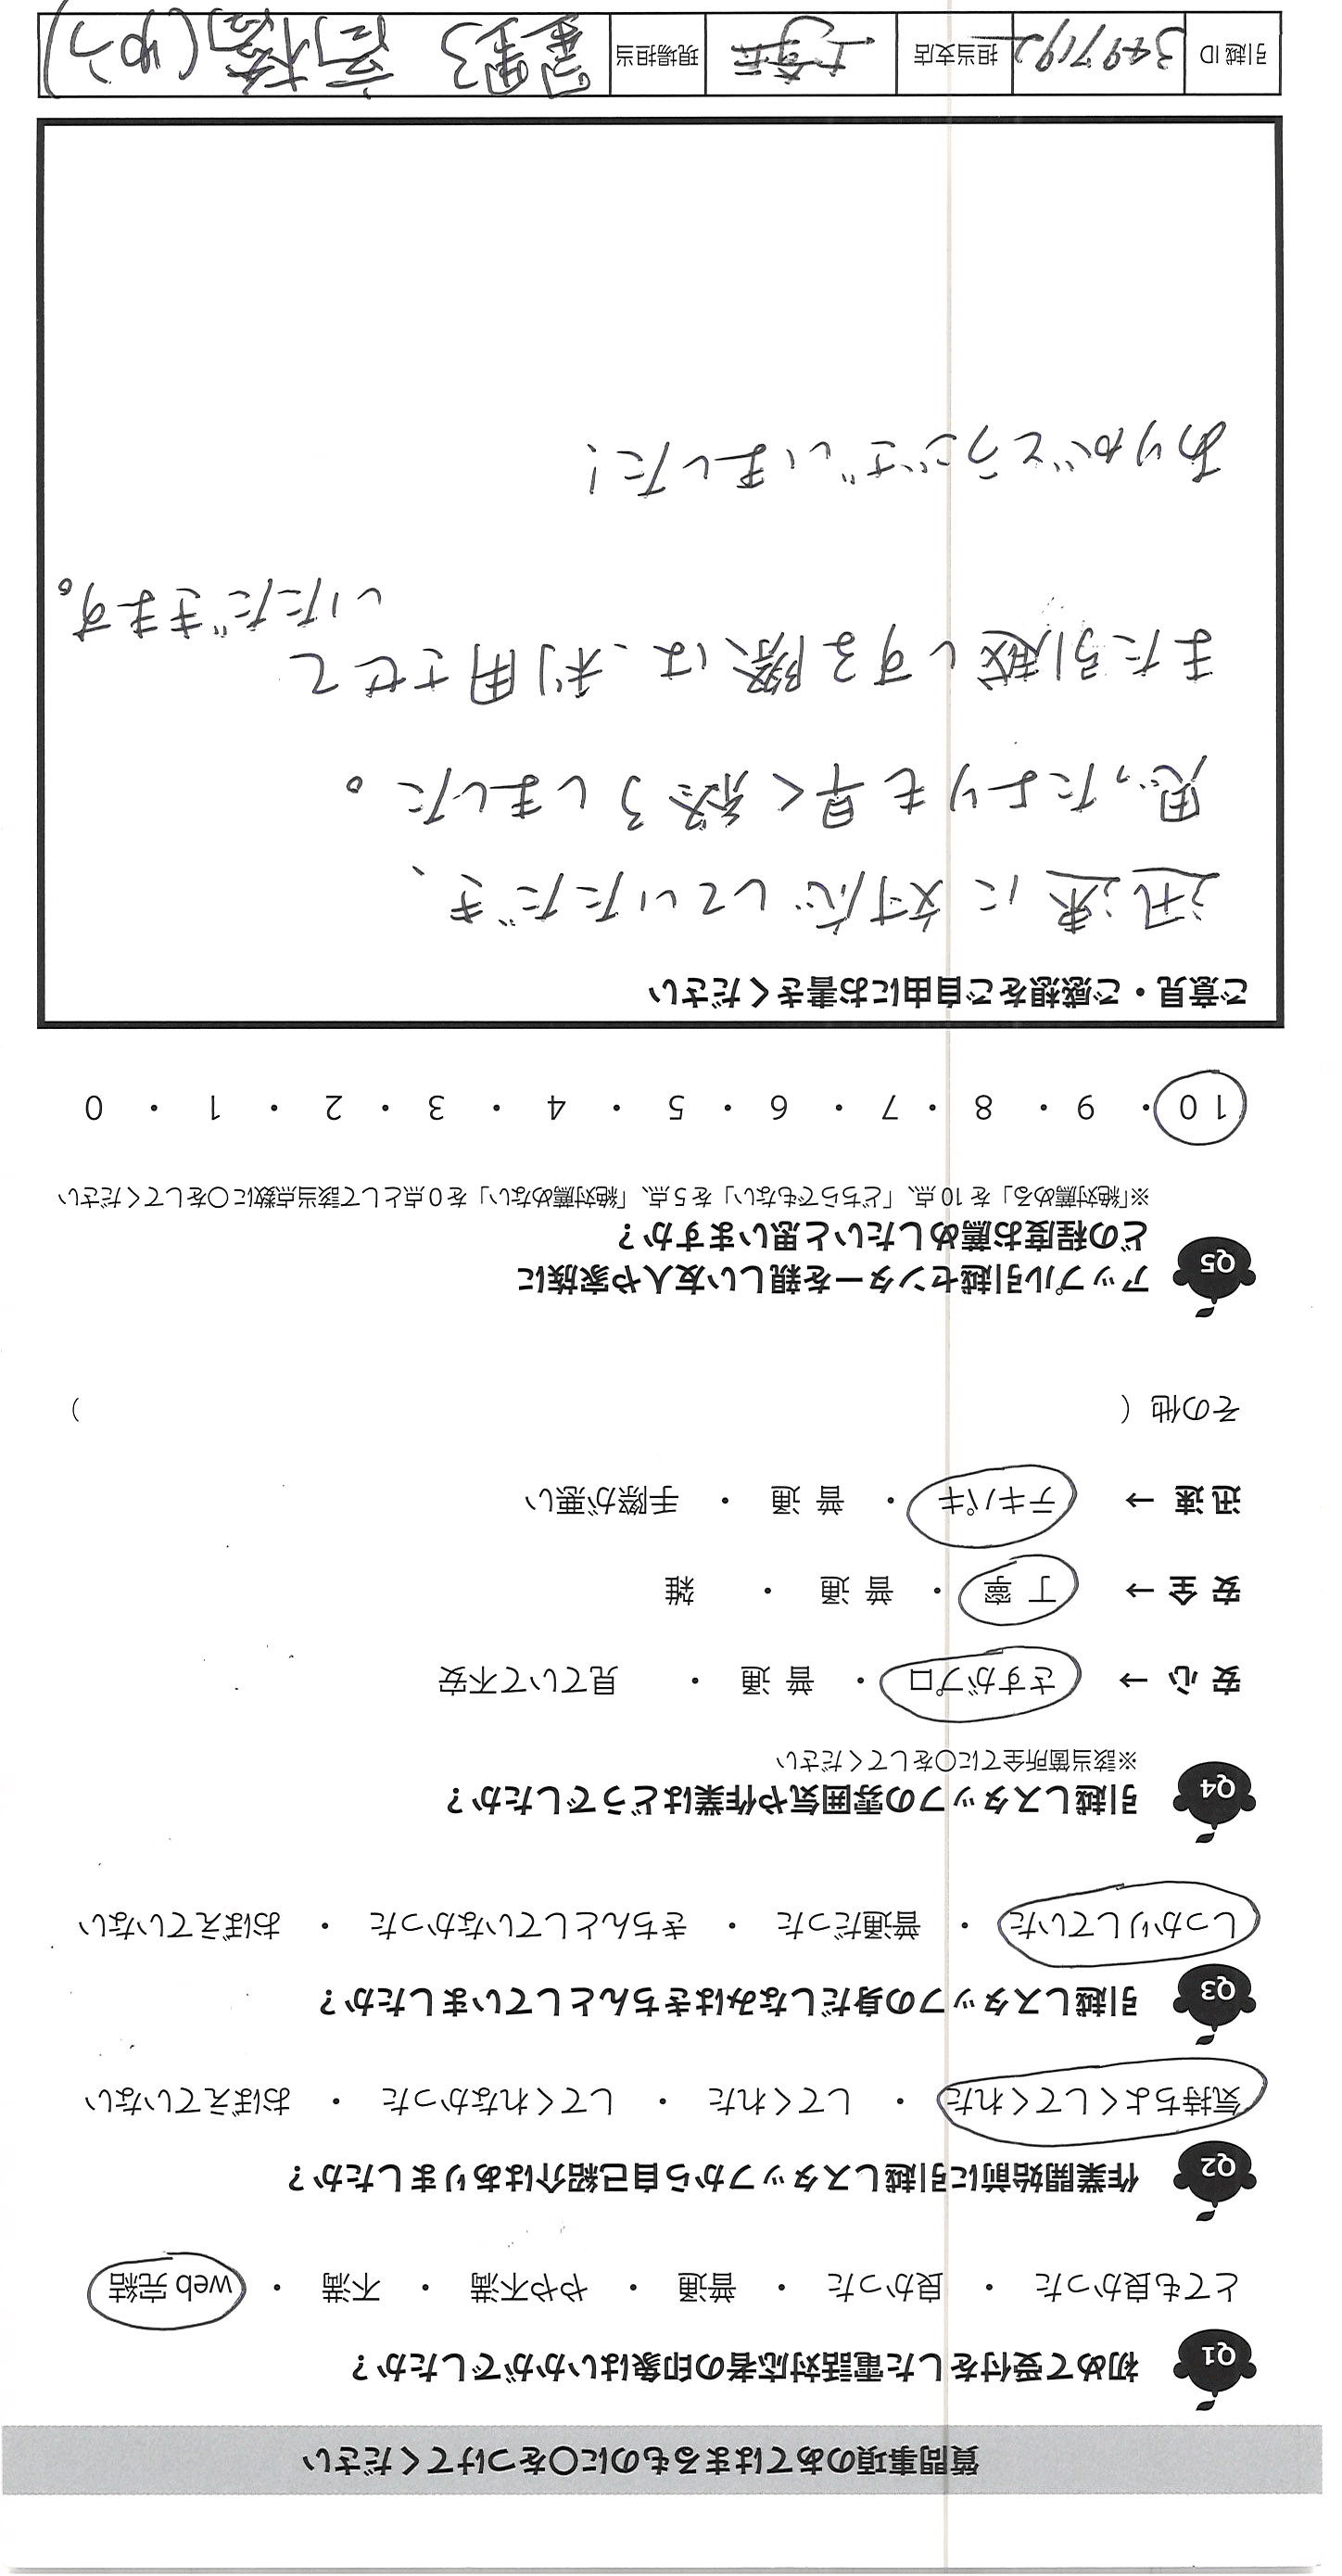 質問事項のあてはまるものに○をつけてください
Q1 初めて受付をした電話対応者の印象はいかがでしたか？
とても良かった ・ 良かった ・ 普通 ・ やや不満 ・ 不満 ・ web 完結
Q2 作業開始前に引越しスタッフから自己紹介はありましたか？
気持ちよくしてくれた ・ してくれた ・ してくれなかった ・ おぼえていない
Q3 引越しスタッフの身だしなみはきちんとしていましたか？
しっかりしていた ・ 普通だった ・ きちんとしていなかった ・ おぼえていない
Q4 引越しスタッフの雰囲気や作業はどうでしたか？
※該当箇所全てに○をしてください
安心 → さすがプロ ・ 普通 ・ 見ていて不安
安全 → 丁寧 ・ 普通 ・ 雑
迅速 → テキパキ ・ 普通 ・ 手際が悪い
その他（ ）
Q5 アップル引越センターを親しい友人や家族に
どの程度お薦めしたいと思いますか？
※「絶対薦める」を 10 点、「どちらでもない」を 5 点、「絶対薦めない」を 0 点として該当点数に○をしてください
10 ・ 9 ・ 8 ・ 7 ・ 6 ・ 5 ・ 4 ・ 3 ・ 2 ・ 1 ・ 0
ご意見・ご感想をご自由にお書きください
迅速に対応していただき、
思ったよりも早く終了しました。
また引越しする際は、利用させて
いただきます。
ありがとうございました！
引越 ID 3497192 担当支店 現場担当 高橋(ゆう)